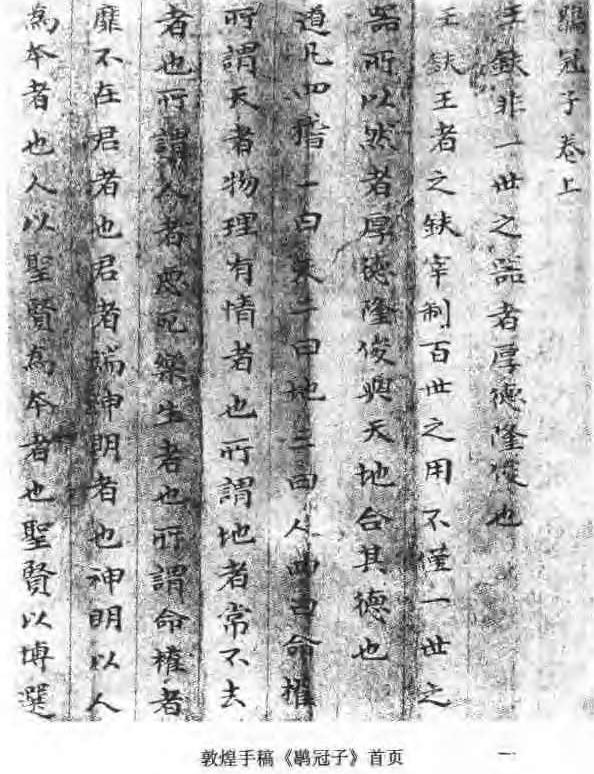 鶡冠子卷上
王鈇非一世之器者厚德隆俊也
王鈇王者之鈇宰制百世之用不僅一世之
器所以然者厚德隆俊與天地合其德也
道凡四稽一曰天二曰地三曰人四曰命權
所謂天者物理有情者也所謂地者常不去
者也所謂人者惡死樂生者也所謂命權者
靡不在君者也君者端神明者也神明以人
為本者也人以聖賢為本者也聖賢以博選
敦煌手稿《鶡冠子》首页